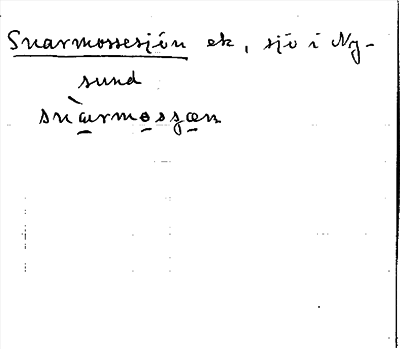 Snarmossesjön ek, sjö i Ny-
sund
snàrmossjæn